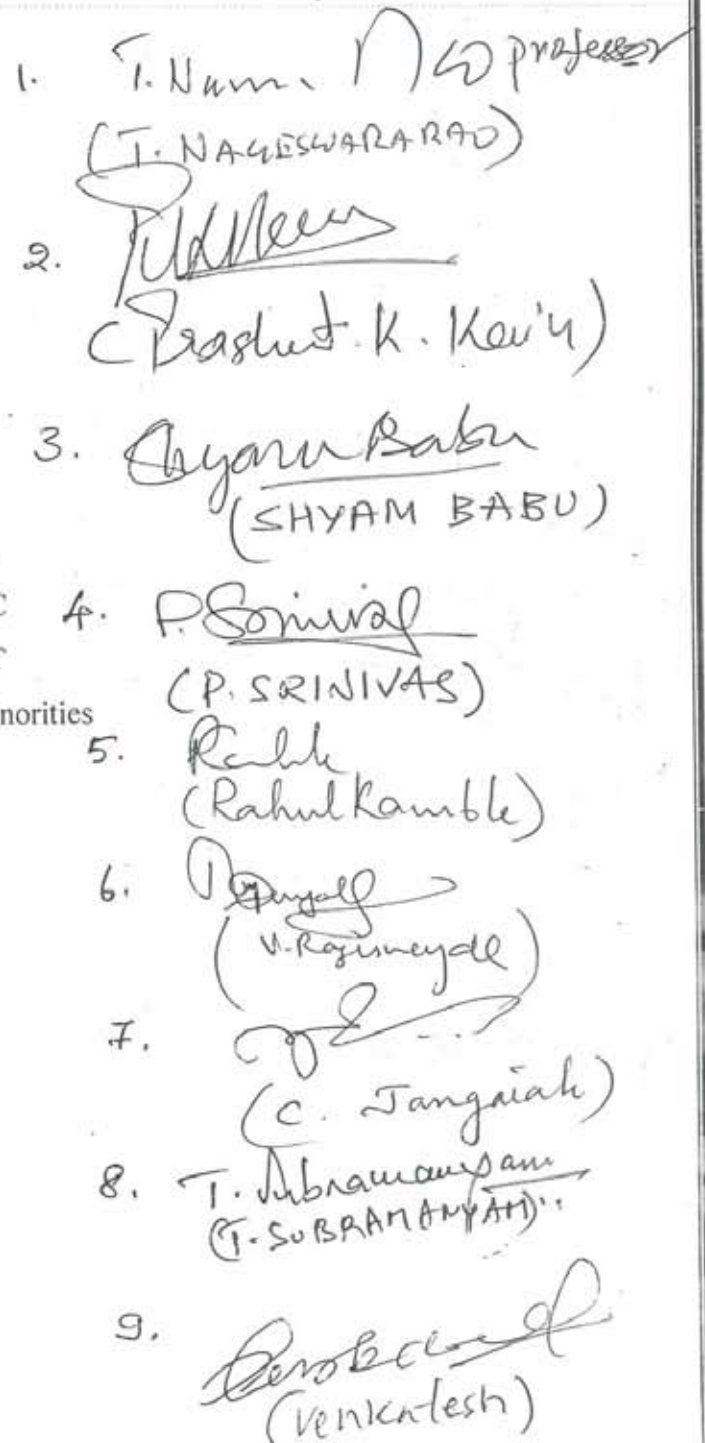 1. T. professor
(T. NAGESWARARAO)
2.
(K.
3. Shyam Babu
(SHYAM BABU)
4. P. Srinivas
(P. SRINIVAS)
norities
5. Rahul
(Rahul Kamble)
6.
7.
(C. Jangaiah)
8. T. Subramanyam
(T. SUBRAMANYAM)
9.
(Venkatesh)